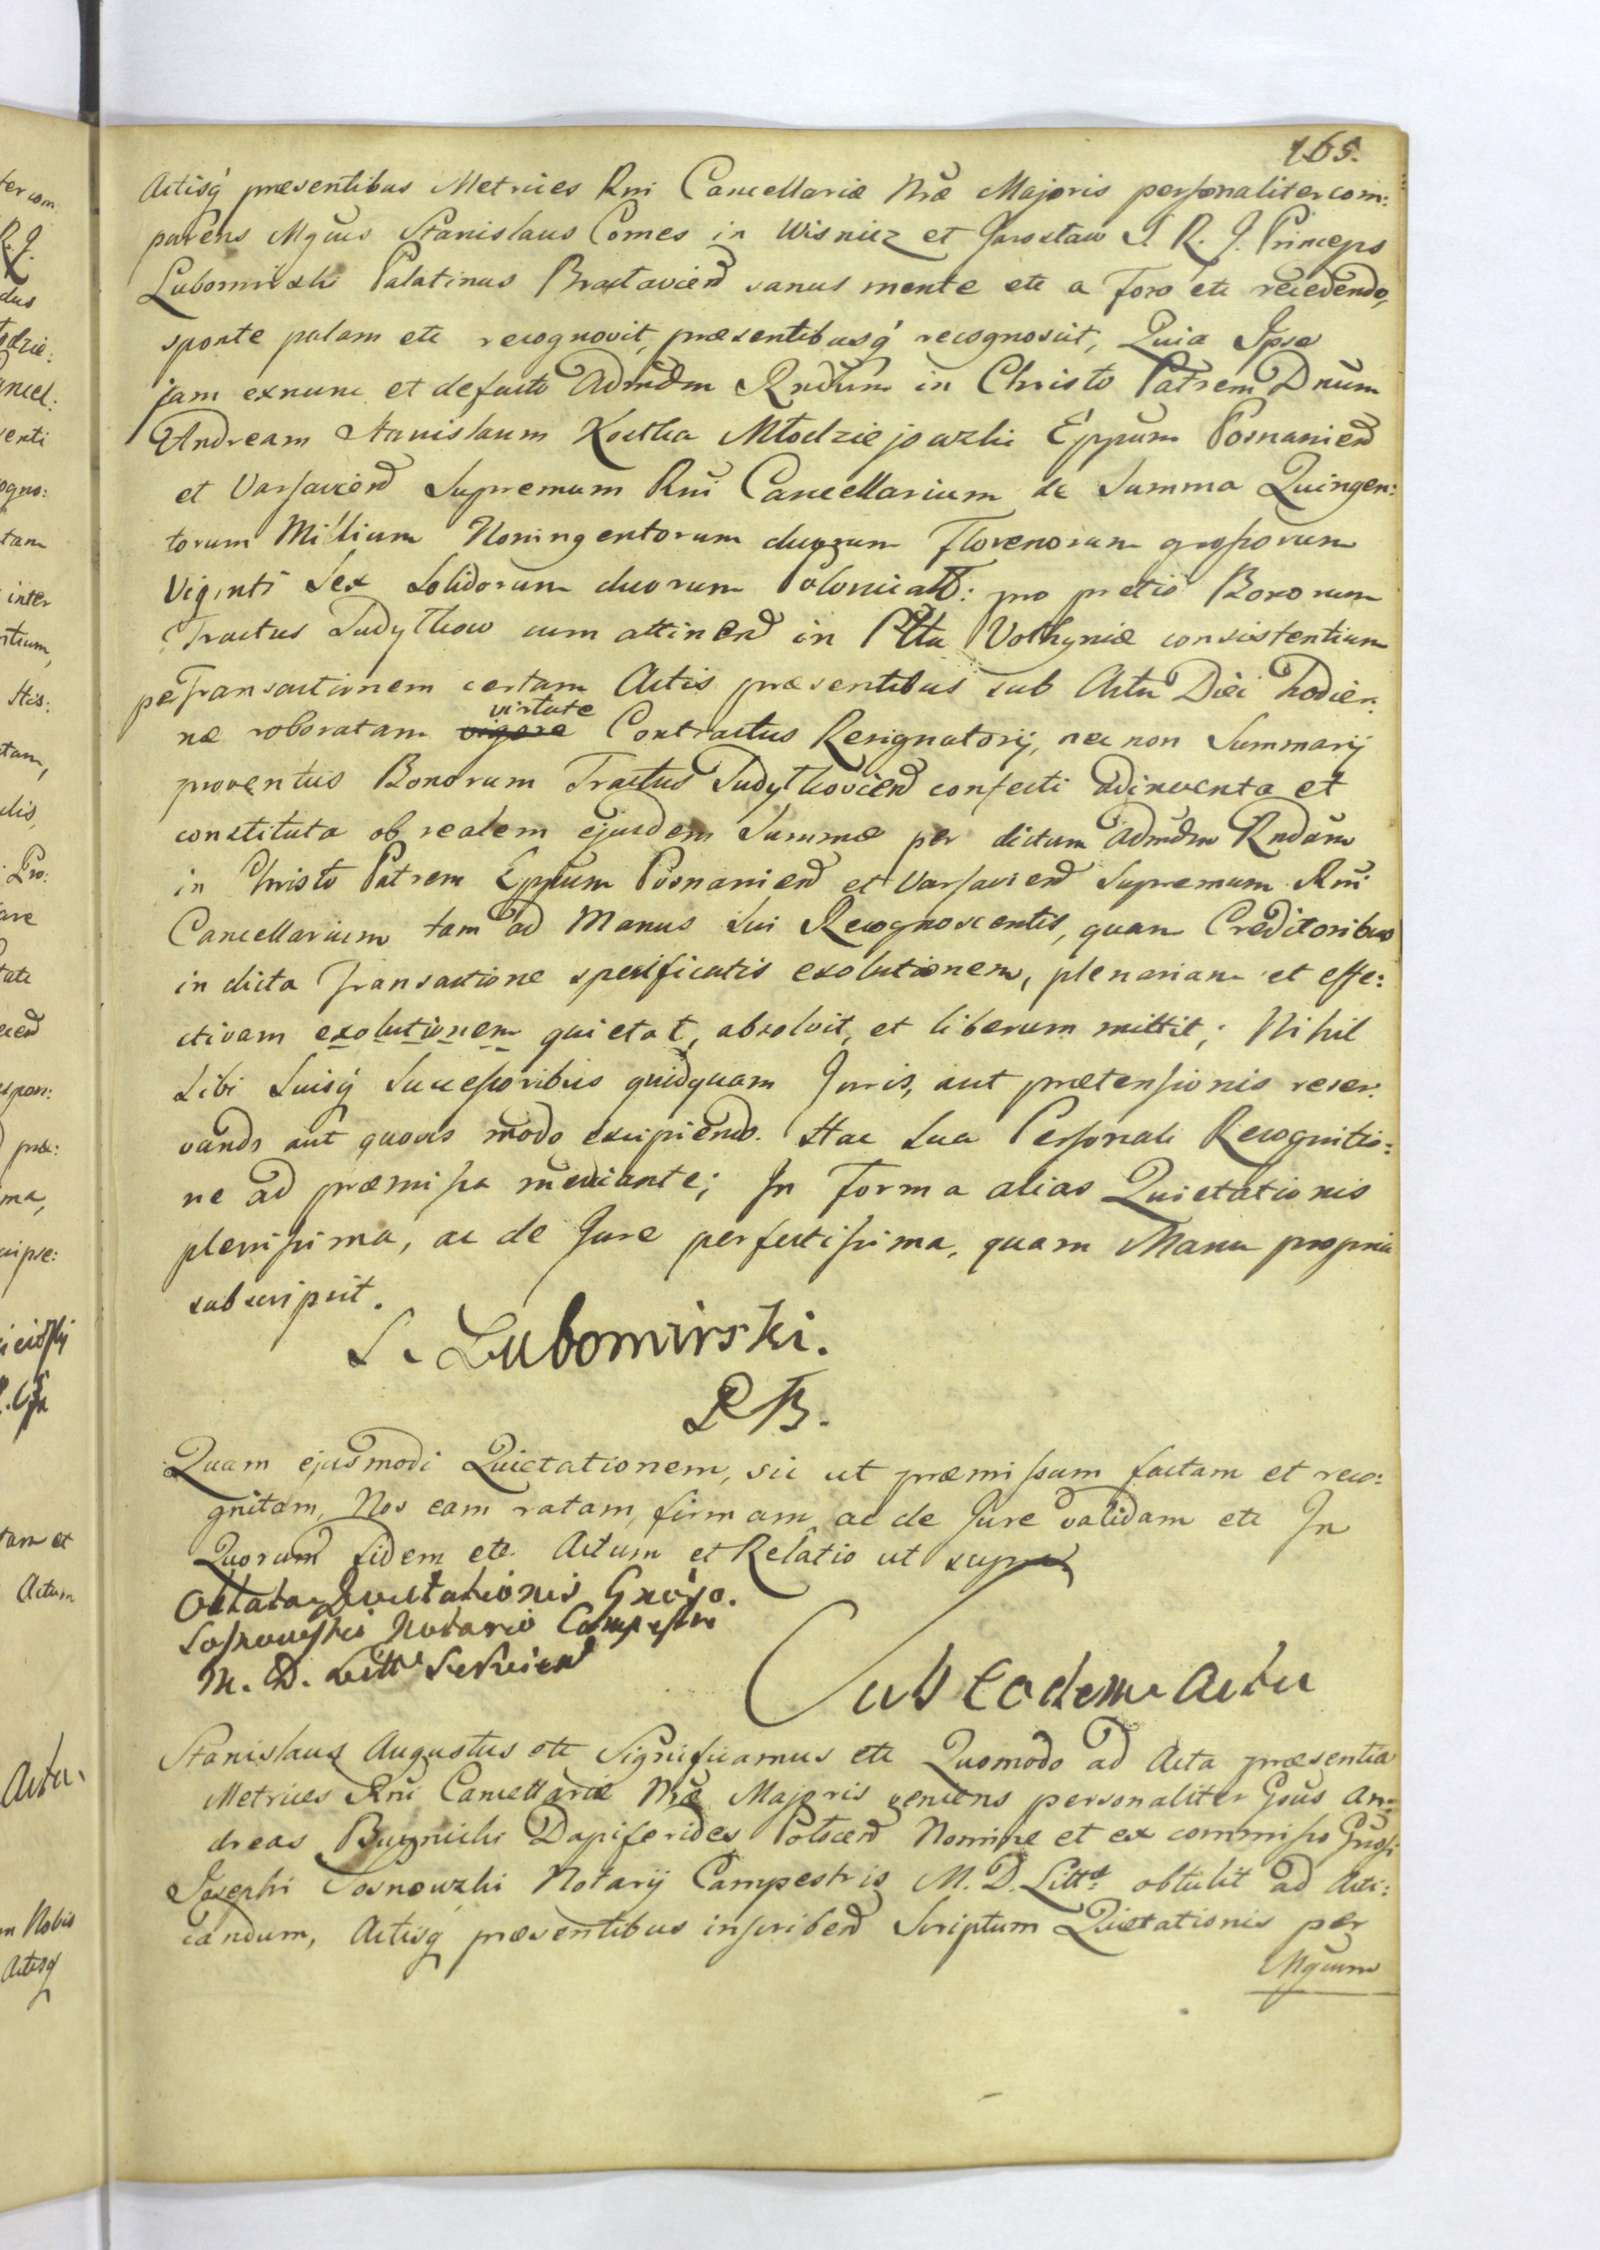 165.
Actisq́ præsentibus Metrices Rni Cancellariæ Nræ Majoris personaliter com:
parens Mgcus Stanislaus Comes in Wisnicz et Jarosław S. R. J. Princeps
Lubomirski Palatinus Bractavien sanus mente etc a Foro etc recedendo,
sponte palam etc recognovit, præsentibusq́ recognoscit, Quia Ipse
jam exnunc et defacto Admdm Rndum in Christo Patrem Dnum
Andream Stanislaum Kostka Młodziejowzki Eppum Posnanien
et Varsavien Supremum Rni Cancellarium de Summa Quingen:
torum Millium Noningentorum duorum Florenorum grossorum
Viginti Sex Solidorum duorum Polonicalt: pro pretio Bonorum
Tractus Tudythow cum attinen in Pltu Volhyniæ consistentium
per Transactionem certam Actis præsentibus sub Actu Diei hodier:
næ roboratam vigore virtute Contractus Resignatorij, nec non Summarij
proventus Bonorum Tractus Tudythovien confecti adinventa et
constituta ob realem ejusdem Summæ per dictum Admdm Rndum
in Christo Patrem Eppum Posnanien et Varsavien Supremum Rni
Cancellarium tam ad Manus Sui Recognoscentis, quam Creditoribus
in dicta Transactione specificatis exolutionem, plenariam et effe:
ctivam exolutionem quietat, absolvit, et liberum mittit; Nihil
Sibi Suisq́ Successoribus quidquam Juris, aut prætensionis reser:
vando aut quovis modo excipiendo. Hac Sua Personali Recognitio:
ne ad præmissa mediante; In Forma alias Quietationis
plenissima, ac de Jure perfectissima, quam Manu propria
subscripsit.
S. Lubomirski.
P B.
Quam ejusmodi Quietationem, sic ut præmissum factam et reco:
gnitam, Nos eam ratam, firmam ac de Jure validam etc In
Quorum fidem etc Actum et Relatio ut supra
Oblata Quietationis Gnoso.
Sosnowski Notario Campestri
M. D. Litt Servien
Sub Eodem Actu
Stanislaus Augustus etc Significamus etc Quomodo ad Acta præsentia
Metrices Rni Cancellariæ Nræ Majoris veniens personaliter Gsus An:
dreas Dapiferides Nomine et ex commisso Gnosi
Josephi Sosnowzki Notarij Campestris M. D. Litt obtulit ad Acti:
candum, Actisq́ præsentibus inscriben Scriptum Quietationis per
Mgcum